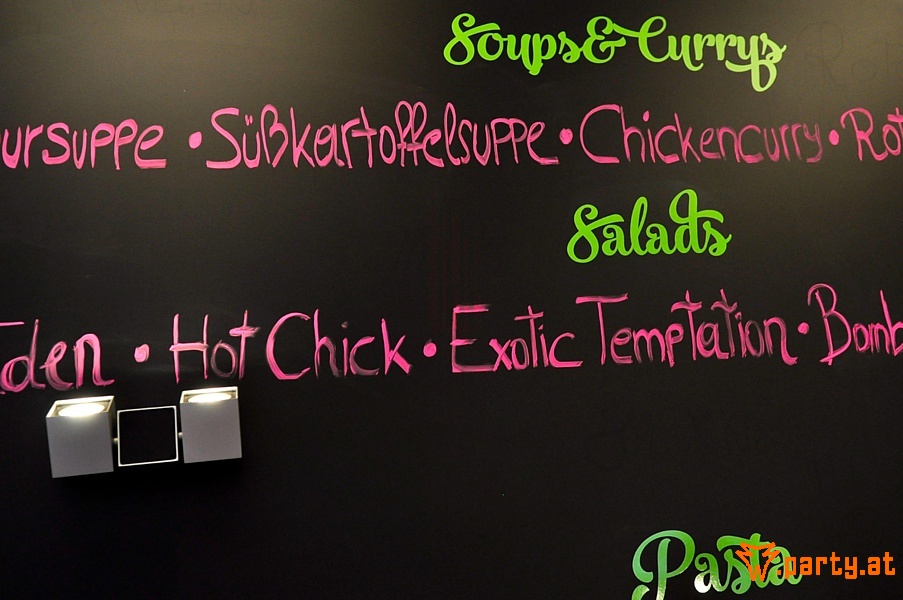 Soups & Currys
ursuppe • Süßkartoffelsuppe • Chickencurry • Rot
Salads
den • Hot Chick • Exotic Temptation • Bomb
Pasta
.party.at